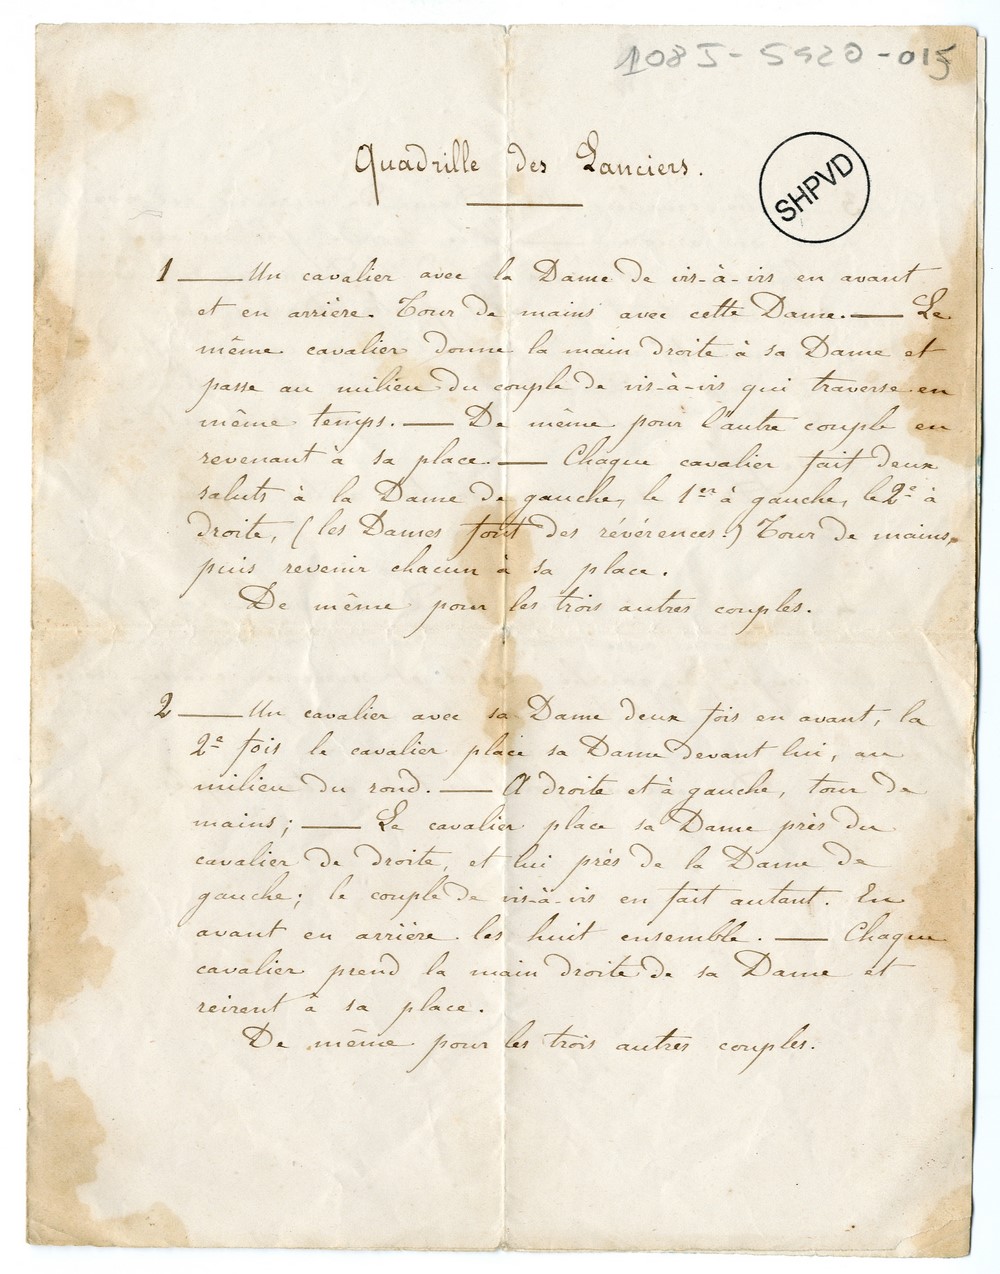 108J-5920-015
Quadrille des Lanciers.
SHPVD
1 — Un cavalier avec la Dame de vis-à-vis en avant
et en arrière. Tour de mains avec cette Dame. — Le
même cavalier donne la main droite à sa Dame et
passe au milieu du couple de vis-à-vis qui traverse en
même temps. — De même pour l'autre couple en
revenant à sa place. — Chaque cavalier fait deux
saluts à la Dame de gauche, le 1er à gauche, le 2e à
droite, (les Dames font des révérences.) Tour de mains,
puis revenir chacun à sa place.
De même pour les trois autres couples.
2 — Un cavalier avec sa Dame deux fois en avant, la
2e fois le cavalier place sa Dame devant lui, au
milieu du rond. — A droite et à gauche, tour de
mains; — Le cavalier place sa Dame près du
cavalier de droite, et lui près de la Dame de
gauche; le couple de vis-à-vis en fait autant. En
avant en arrière les huit ensemble. — Chaque
cavalier prend la main droite de sa Dame et
reirent à sa place.
De même pour les trois autres couples.